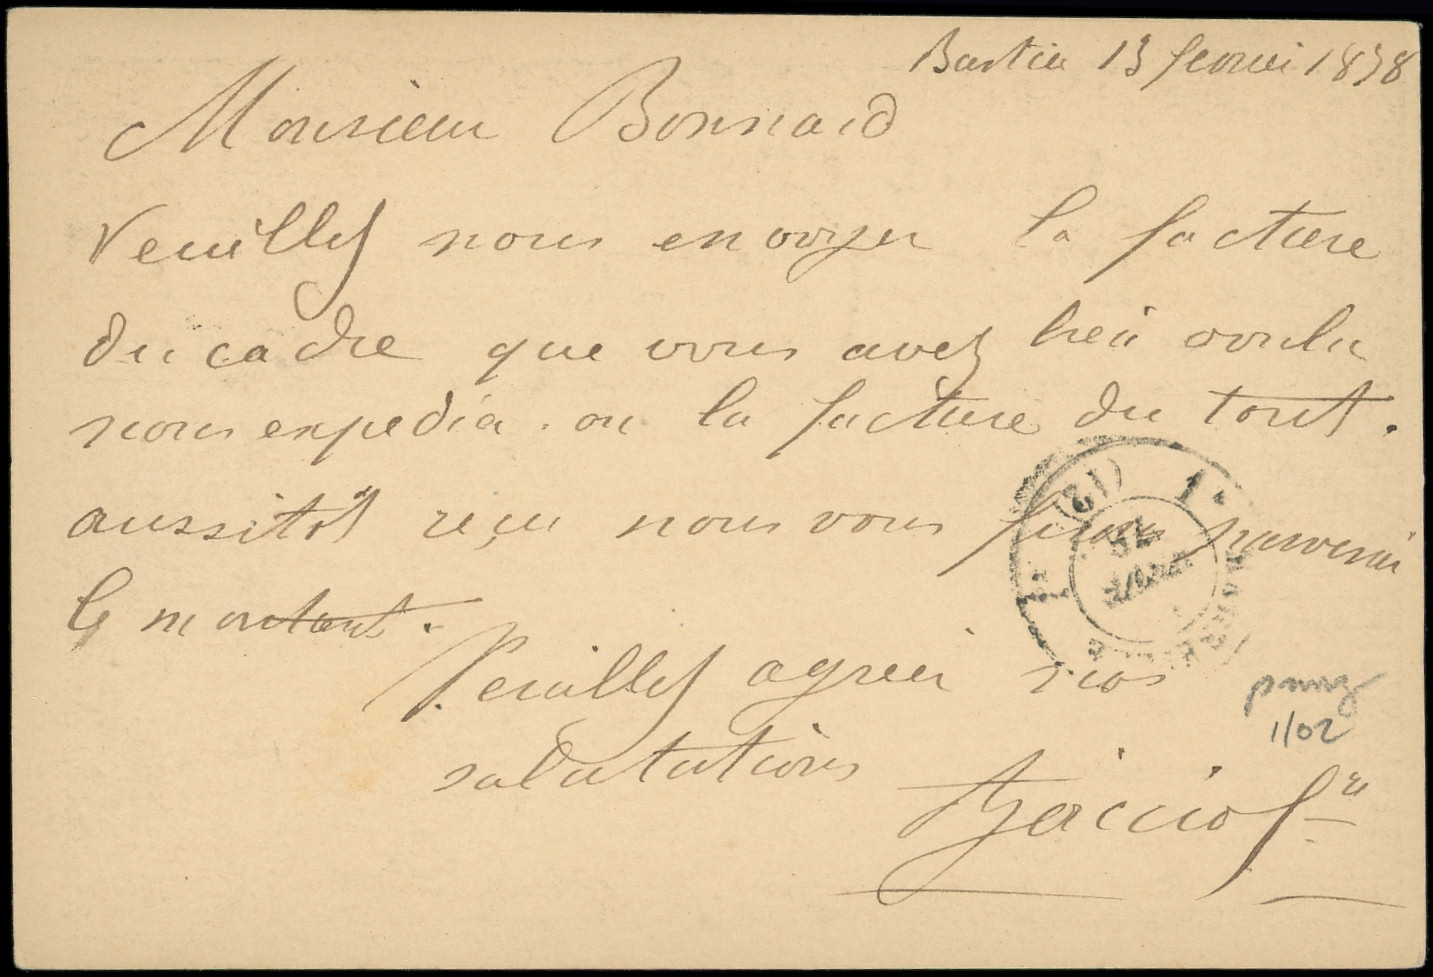 Bastia 13 fevrier 1878
Monsieur Bonnard
Veuillez nous envoyer la facture
du cadre que vous avez bien voulu
nous expedier. ou la facture du tout.
aussitôt reçu nous vous ferons parvenir
le montant.
Veuillez agreer nos
salutations
1/02